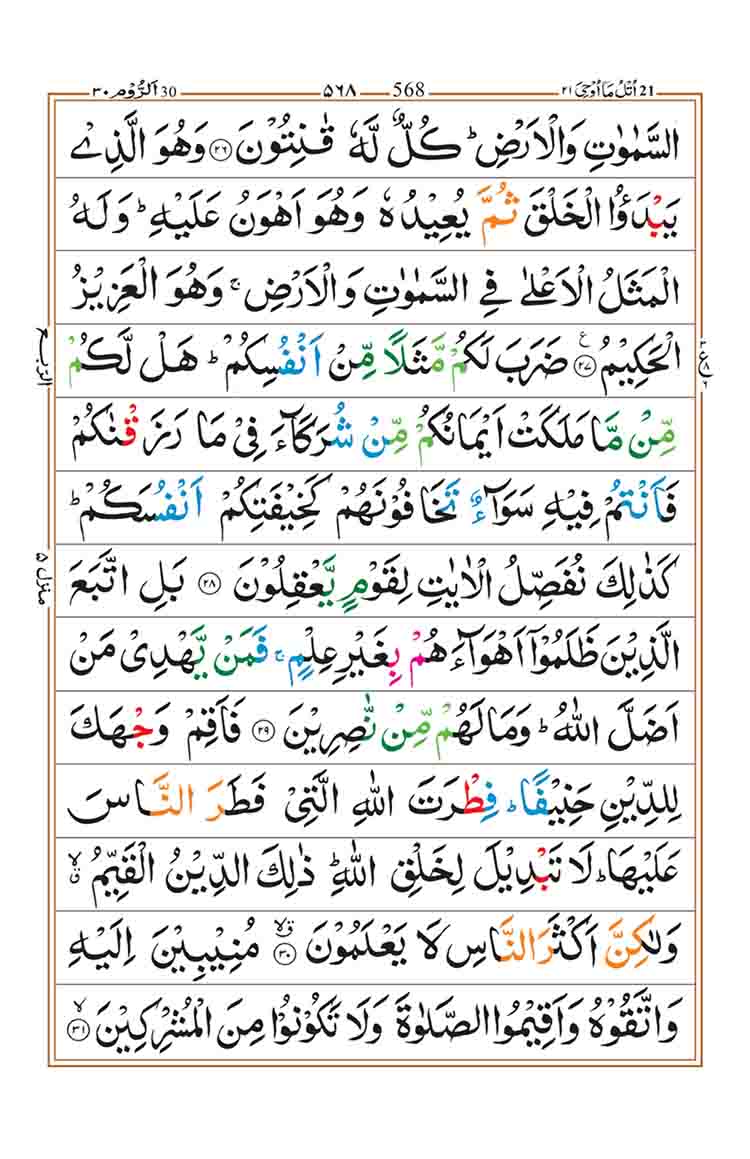 اُتْلُ مَاۤ اُوْحِیَ ٢١ 21 568 ۵۶۸ اَلرُّوْم ٣٠ 30
السَّمٰوٰتِ وَالْاَرْضِ ؕ كُلٌّ لَّهٗ قٰنِتُوْنَ ﴿٢٦﴾ وَهُوَ الَّذِیْ
یَبْدَؤُا الْخَلْقَ ثُمَّ یُعِیْدُهٗ وَهُوَ اَهْوَنُ عَلَیْهِ ؕ وَلَهُ
الْمَثَلُ الْاَعْلٰی فِی السَّمٰوٰتِ وَالْاَرْضِ ۚ وَهُوَ الْعَزِیْزُ
الْحَكِیْمُ ﴿٢٧﴾ ضَرَبَ لَكُمْ مَّثَلًا مِّنْ اَنْفُسِكُمْ ؕ هَلْ لَّكُمْ
مِّنْ مَّا مَلَكَتْ اَیْمَانُكُمْ مِّنْ شُرَكَآءَ فِیْ مَا رَزَقْنٰكُمْ
فَاَنْتُمْ فِیْهِ سَوَآءٌ تَخَافُوْنَهُمْ كَخِیْفَتِكُمْ اَنْفُسَكُمْ ؕ
كَذٰلِكَ نُفَصِّلُ الْاٰیٰتِ لِقَوْمٍ یَّعْقِلُوْنَ ﴿٢٨﴾ بَلِ اتَّبَعَ
الَّذِیْنَ ظَلَمُوْۤا اَهْوَآءَهُمْ بِغَیْرِ عِلْمٍ ۚ فَمَنْ یَّهْدِیْ مَنْ
اَضَلَّ اللّٰهُ ؕ وَمَا لَهُمْ مِّنْ نّٰصِرِیْنَ ﴿٢٩﴾ فَاَقِمْ وَجْهَكَ
لِلدِّیْنِ حَنِیْفًا ؕ فِطْرَتَ اللّٰهِ الَّتِیْ فَطَرَ النَّاسَ
عَلَیْهَا ؕ لَا تَبْدِیْلَ لِخَلْقِ اللّٰهِ ؕ ذٰلِكَ الدِّیْنُ الْقَیِّمُ ۙۗ
وَلٰكِنَّ اَكْثَرَ النَّاسِ لَا یَعْلَمُوْنَ ﴿٣٠﴾ مُنِیْبِیْنَ اِلَیْهِ
وَاتَّقُوْهُ وَاَقِیْمُوا الصَّلٰوةَ وَلَا تَكُوْنُوْا مِنَ الْمُشْرِكِیْنَ ﴿٣١﴾
الربع
منزل ۵